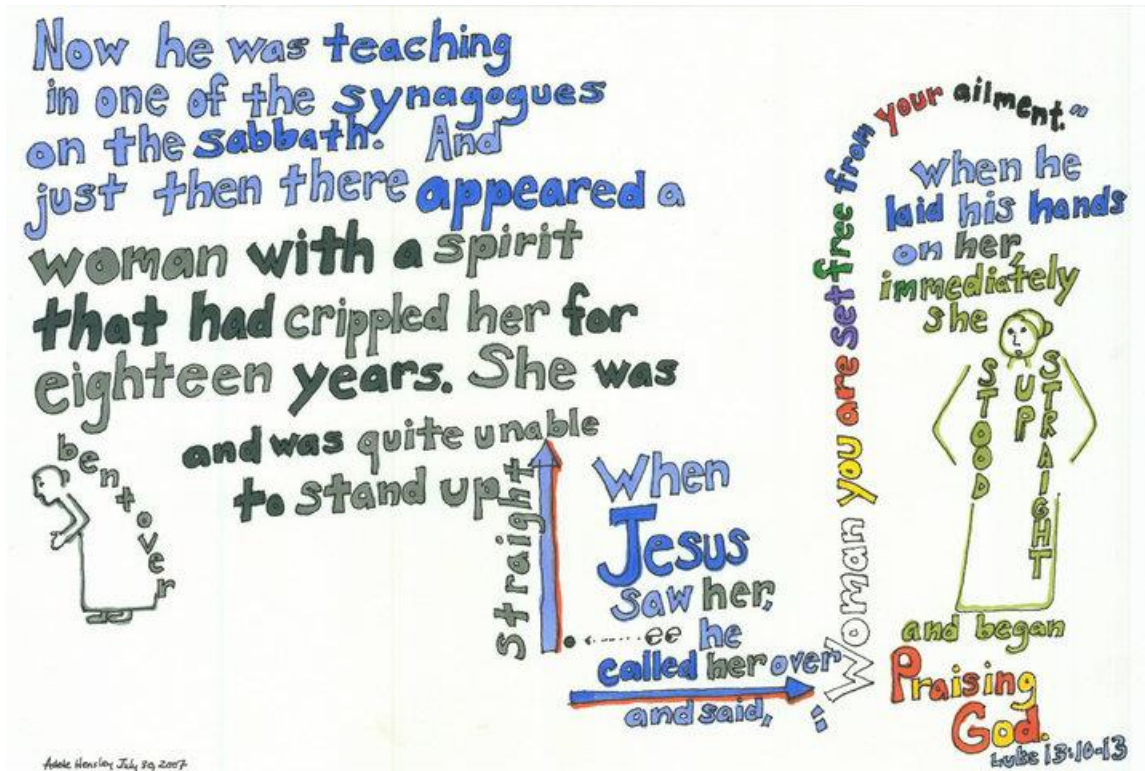 Now he was teaching
in one of the synagogues
on the sabbath. And
just then there appeared a
woman with a spirit
that had crippled her for
eighteen years. She was
bent over
and was quite unable
to stand up
straight
When
Jesus
saw her,
he
called her over
and said,
"Woman you are set free from your ailment."
when he
laid his hands
on her,
immediately
she
STOOD
UP
STRAIGHT
and began
Praising
God.
Luke 13:10-13
Adele Hensley July 30, 2007